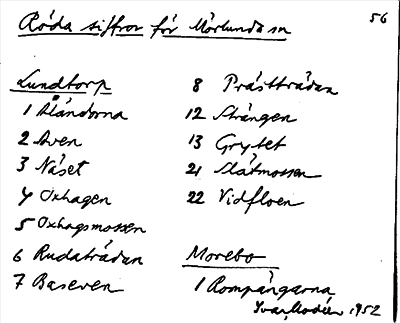 Röda siffror för Mörlunda sn
56
Lundtorp
1 Åländorna
2 Aven
3 Näset
4 Oxhagen
5 Oxhagsmossen
6 Rudaträdan
7 Baseven
8 Prästträdan
12 Strängen
13 Grytet
21 Slåtmossen
22 Vidfloen
Morebo
1 Rompängarna
Ivar Modéer 1952